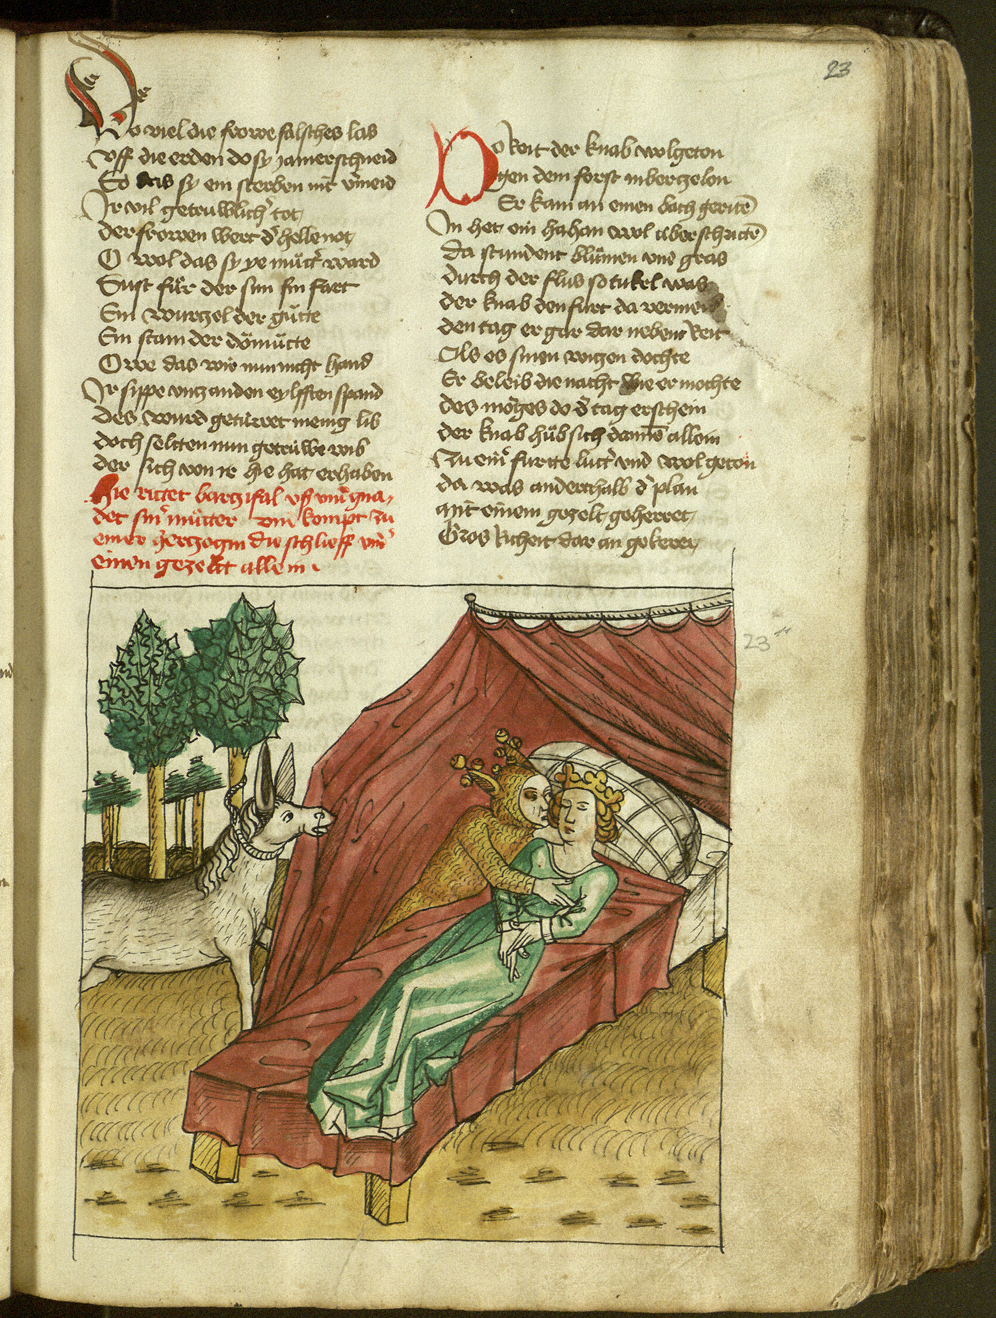 23
Do viel die frowe falsches las
Vff die erden do sÿ jamer schneid
So das sÿ ein sterben nit v̄meid
Ir vil getrúwlich tot
der frowen wert d' helle not
O wol das sÿ ye mu̍tt' ward
Sust fu̍r der sun sin fart
Ein wurczel der gu̍tte
Ein stam der dömu̍tte
Owe das wir nun nicht hand
Ir sippe vncz an den eylfften spand
Des wurd getúrret menig lib
doch seltten nun getrúwe wib
der sich von ir hie hat erhaben
Hie rittet barczifal vff vnd gna,
det sin' mu̍tter vnd kompt zu
einer herczogin die schlieff vnd'
einen gezeltt allein .
Do Reit der knab wolgeton
gen dem forst in berczelon
Er kam an einen bach geritē
In het ein hahan wol úberschrittē
da stundent blu̍men vnd gras
durch der flus so tukel was
der knab den furt da vermeid
den tag er gar dar neben Reit
Als es sinen wiczen dochte
Er beleib die nacht wie er mochte
des morges do d' tag erschein
der knab húbsich dannē allein
Zu eim furtte lutt' vnd wolgeton
da was anderthalb d' plan
mit einem gezelt geherret
Gros Richeit dar an gekerer
23